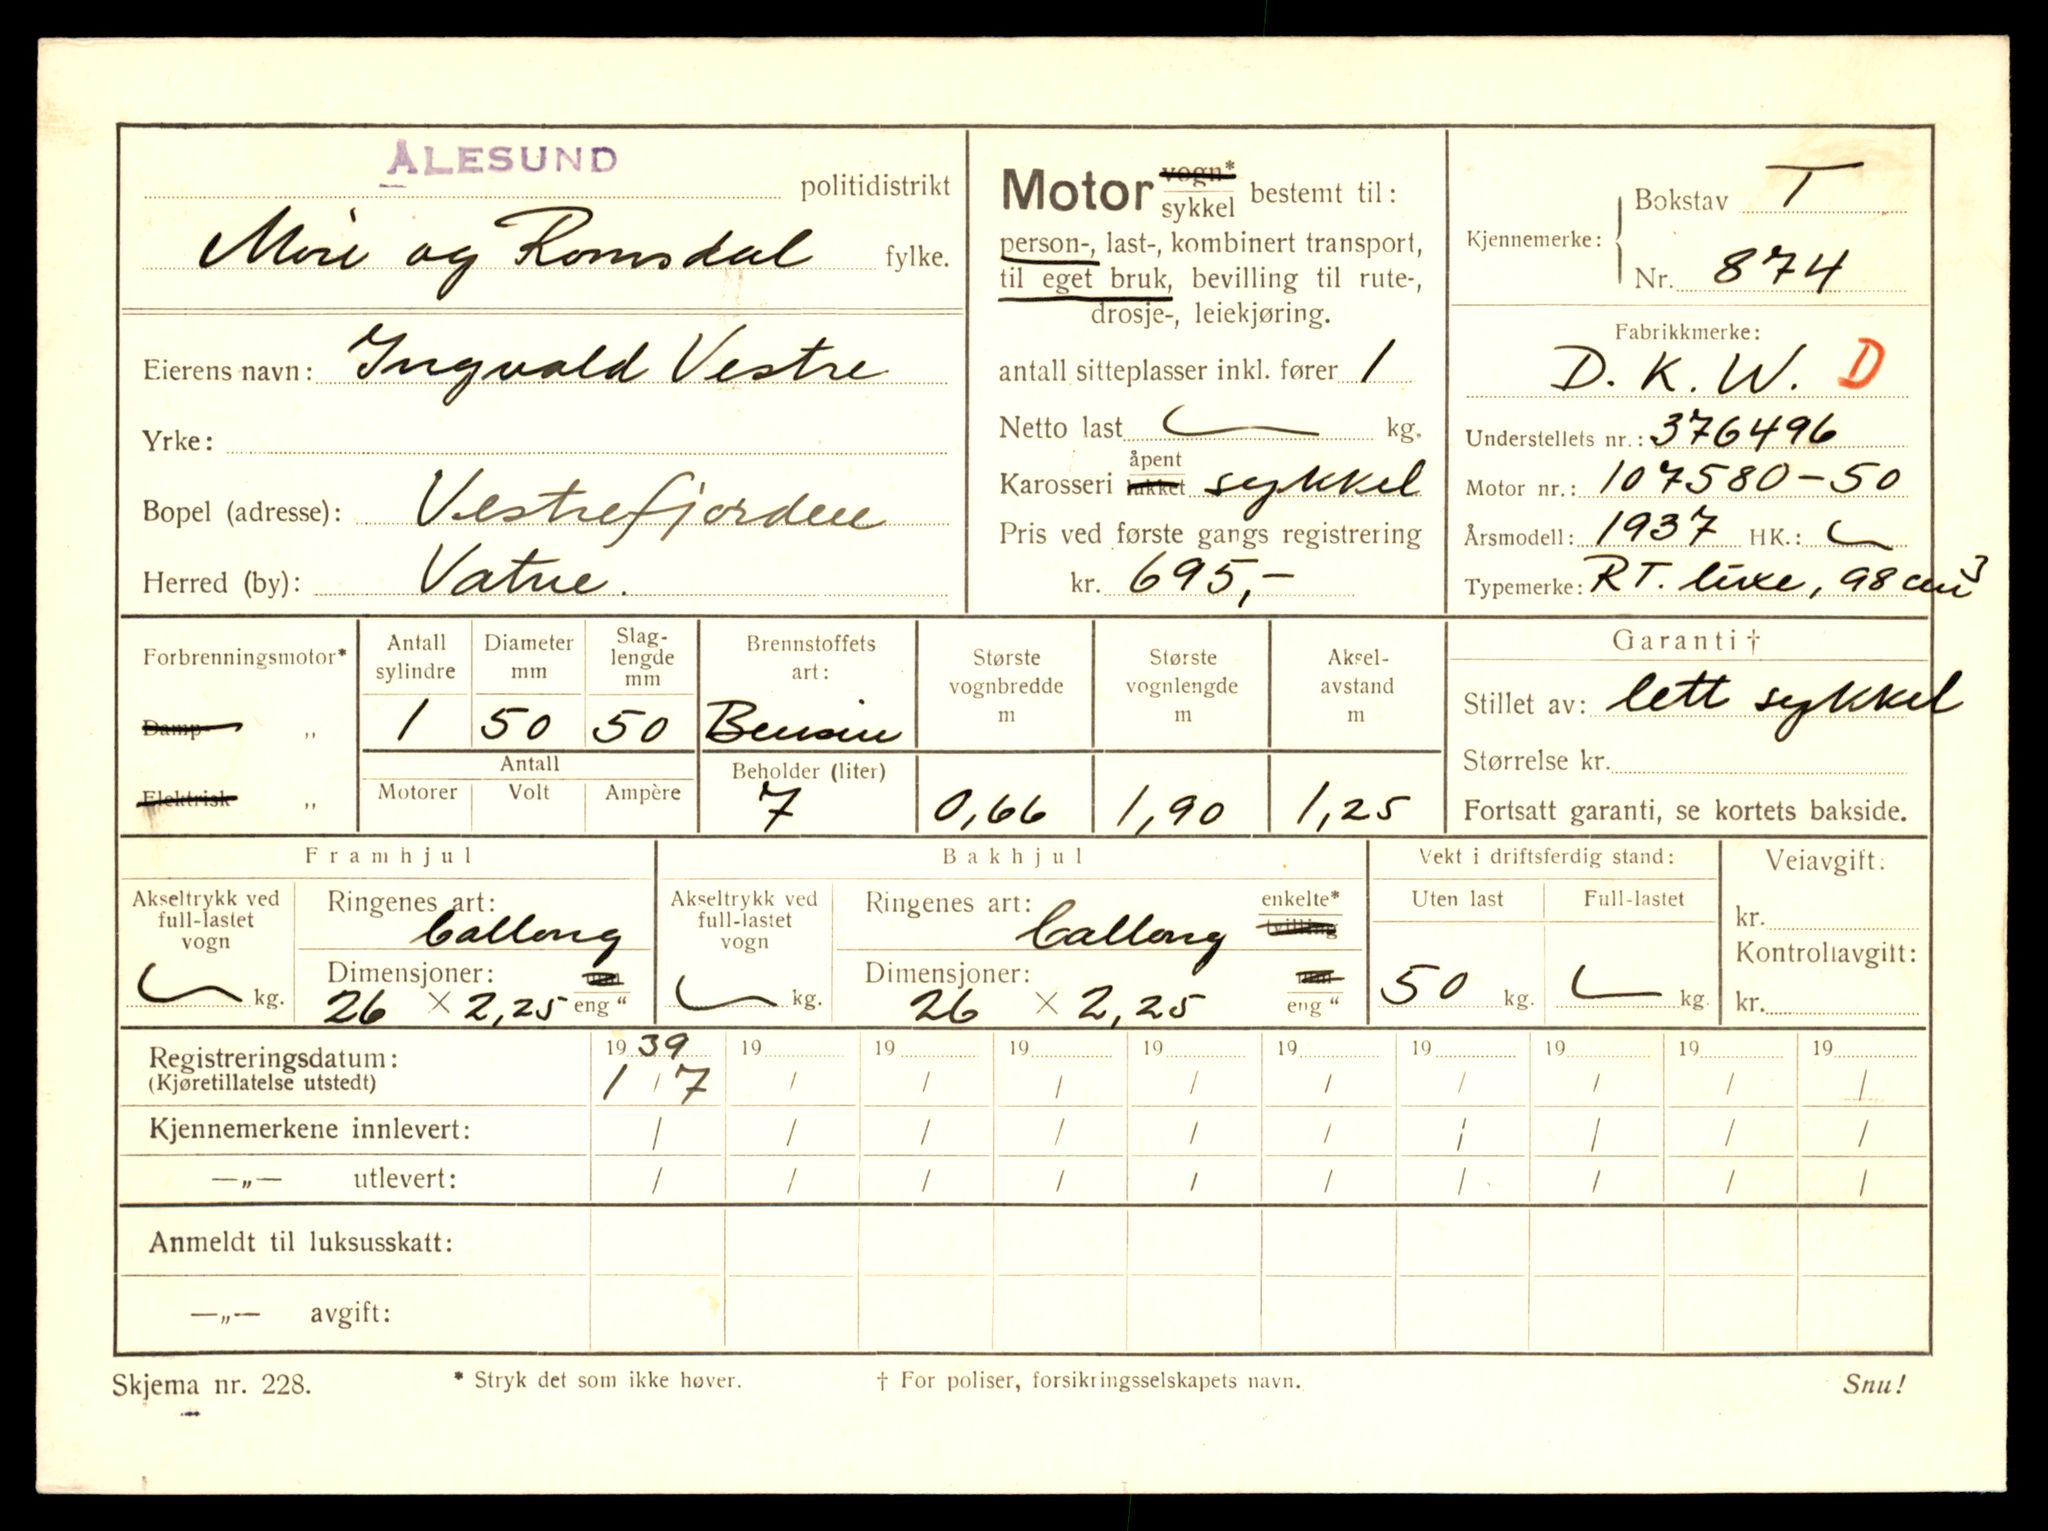 ÅLESUND politidistrikt
Møre og Romsdal fylke.
Eierens navn: Ingvald Vestre
Yrke:
Bopel (adresse): Vestrefjorden
Herred (by): Vatne.
Motor vogn* sykkel bestemt til:
person-, last-, kombinert transport,
til eget bruk, bevilling til rute-,
drosje-, leiekjøring.
antall sitteplasser inkl. fører 1
Netto last kg.
Karosseri åpent lukket sykkel
Pris ved første gangs registrering
kr. 695,-
Kjennemerke: Bokstav T
Nr. 874
Fabrikkmerke:
D. K. W. D
Understellets nr.: 376496
Motor nr.: 107580-50
Årsmodell: 1937 HK.:
Typemerke: RT. luxe, 98 cm³
Forbrenningsmotor*
Damp- „
Elektrisk „
Antall sylindre
1
Diameter mm
50
Slag-lengde mm
50
Antall
Motorer Volt Ampère
Brennstoffets art:
Bensin
Beholder (liter)
7
Største vognbredde m
0,66
Største vognlengde m
1,90
Aksel-avstand m
1,25
Garanti †
Stillet av: lett sykkel
Størrelse kr.
Fortsatt garanti, se kortets bakside.
Framhjul
Akseltrykk ved full-lastet vogn
kg.
Ringenes art:
Ballong
Dimensjoner: mm
26 × 2,25 eng “
Bakhjul
Akseltrykk ved full-lastet vogn
kg.
Ringenes art: enkelte* tvilling
Ballong
Dimensjoner: mm
26 × 2,25 eng “
Vekt i driftsferdig stand:
Uten last Full-lastet
50 kg. kg.
Veiavgift:
kr.
Kontrollavgift:
kr.
Registreringsdatum: 1939 19 19 19 19 19 19 19 19 19
(Kjøretillatelse utstedt) 1 / 7 / / / / / / / / /
Kjennemerkene innlevert: / / / / / / / / / /
—„— utlevert: / / / / / / / / / /
Anmeldt til luksusskatt:
—„— avgift:
Skjema nr. 228. * Stryk det som ikke høver. † For poliser, forsikringsselskapets navn. Snu!